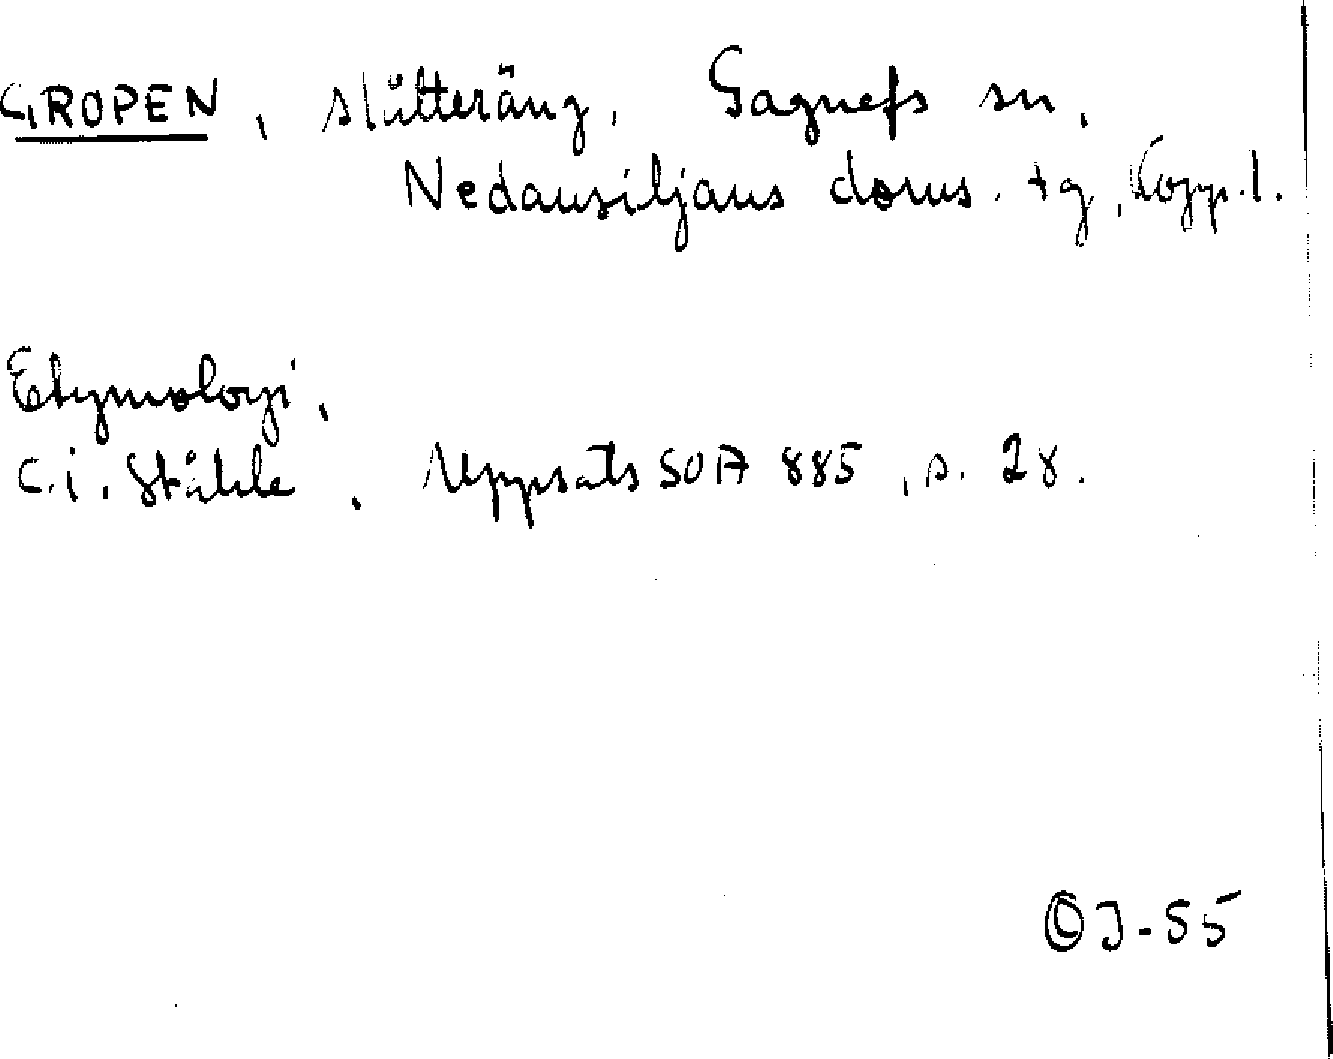 GROPEN, slåtteräng, Gagnefs sn,
Nedansiljans doms. tg, Kopp. l.
Etymologi,
C.i. Ståhle, Uppsats SOA 885, s. 28.
J-55